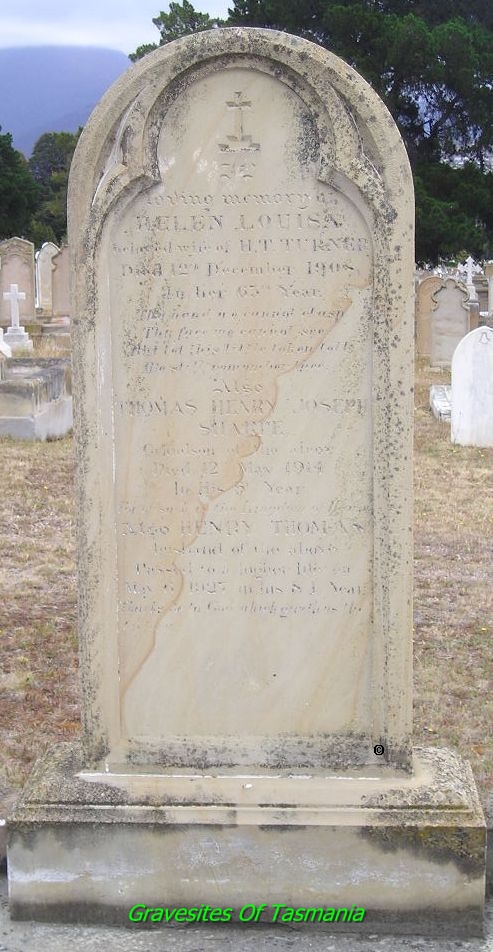 In
loving memory of
HELEN LOUISA
beloved wife of H.T. TURNER
Died 12th December 1908
In her 63rd Year
The hand we cannot clasp
Thy face we cannot see
But let this little token tell
We still remember thee
Also
THOMAS HENRY JOSEPH
SHARPE
Grandson of the above
Died 12 May 1914
In his Year
Also HENRY THOMAS
husband of the above
Passed to a higher life on
May 6 1927 in his 81 Year
Thanks be to God which giveth us the
©
Gravesites Of Tasmania